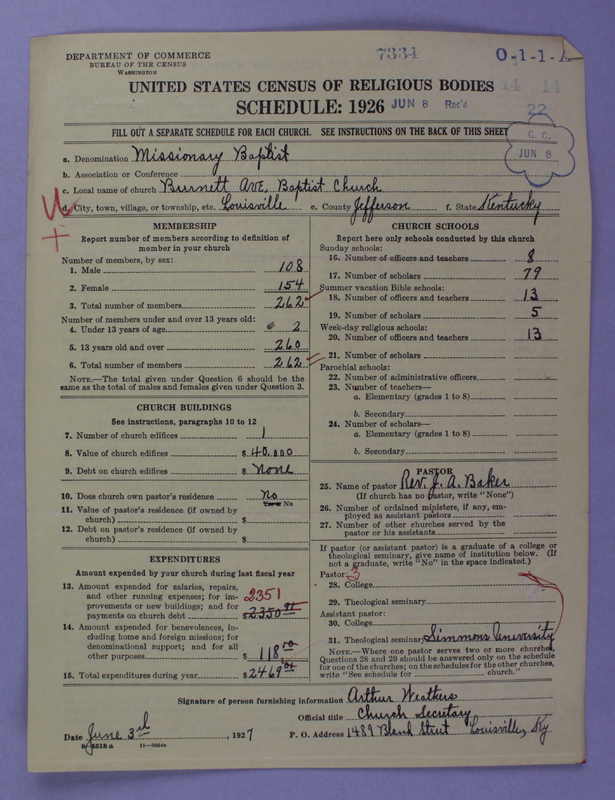 DEPARTMENT OF COMMERCE
BUREAU OF THE CENSUS
WASHINGTON
7334
O-1-1-
14 11
UNITED STATES CENSUS OF RELIGIOUS BODIES
SCHEDULE: 1926 JUN 8 Rec'd
22
FILL OUT A SEPARATE SCHEDULE FOR EACH CHURCH. SEE INSTRUCTIONS ON THE BACK OF THIS SHEET
C. C.
JUN 8
a. Denomination Missionary Baptist
b. Association or Conference
c. Local name of church Burnett Ave, Baptist Church
d. City, town, village, or township, etc. Louisville e. County Jefferson f. State Kentucky
MEMBERSHIP
Report number of members according to definition of
member in your church
Number of members, by sex:
1. Male 108
2. Female 154
3. Total number of members 262
Number of members under and over 13 years old:
4. Under 13 years of age 2
5. 13 years old and over 260
6. Total number of members 262
NOTE.—The total given under Question 6 should be the
same as the total of males and females given under Question 3.
CHURCH BUILDINGS
See instructions, paragraphs 10 to 12
7. Number of church edifices 1
8. Value of church edifices $ 40,000
9. Debt on church edifices $ None
10. Does church own pastor's residence No
Yes or No
11. Value of pastor's residence (if owned by
church) $
12. Debt on pastor's residence (if owned by
church) $
EXPENDITURES
Amount expended by your church during last fiscal year
13. Amount expended for salaries, repairs,
and other running expenses; for im-
provements or new buildings; and for
payments on church debt 2351 $ 2350 91
14. Amount expended for benevolences, in-
cluding home and foreign missions; for
denominational support; and for all
other purposes $ 118 10
15. Total expenditures during year $ 2469 01
CHURCH SCHOOLS
Report here only schools conducted by this church
Sunday schools:
16. Number of officers and teachers 8
17. Number of scholars 79
Summer vacation Bible schools:
18. Number of officers and teachers 13
19. Number of scholars 5
Week-day religious schools:
20. Number of officers and teachers 13
21. Number of scholars
Parochial schools:
22. Number of administrative officers
23. Number of teachers—
a. Elementary (grades 1 to 8)
b. Secondary
24. Number of scholars—
a. Elementary (grades 1 to 8)
b. Secondary
PASTOR
25. Name of pastor Rev. J. A. Baker
(If church has no pastor, write "None")
26. Number of ordained ministers, if any, em-
ployed as assistant pastors
27. Number of other churches served by the
pastor or his assistants
If pastor (or assistant pastor) is a graduate of a college or
theological seminary, give name of institution below. (If
not a graduate, write "No" in the space indicated.)
Pastor: 3
28. College
29. Theological seminary
Assistant pastor:
30. College
31. Theological seminary Simmons University
NOTE.—Where one pastor serves two or more churches,
Questions 28 and 29 should be answered only on the schedule
for one of the churches; on the schedules for the other churches,
write "See schedule for church."
Signature of person furnishing information Arthur Weathers
Official title Church Secretary
Date June 3rd, 1927 P. O. Address 1489 Bland Street Louisville, Ky
8-5518 a 11-9054a